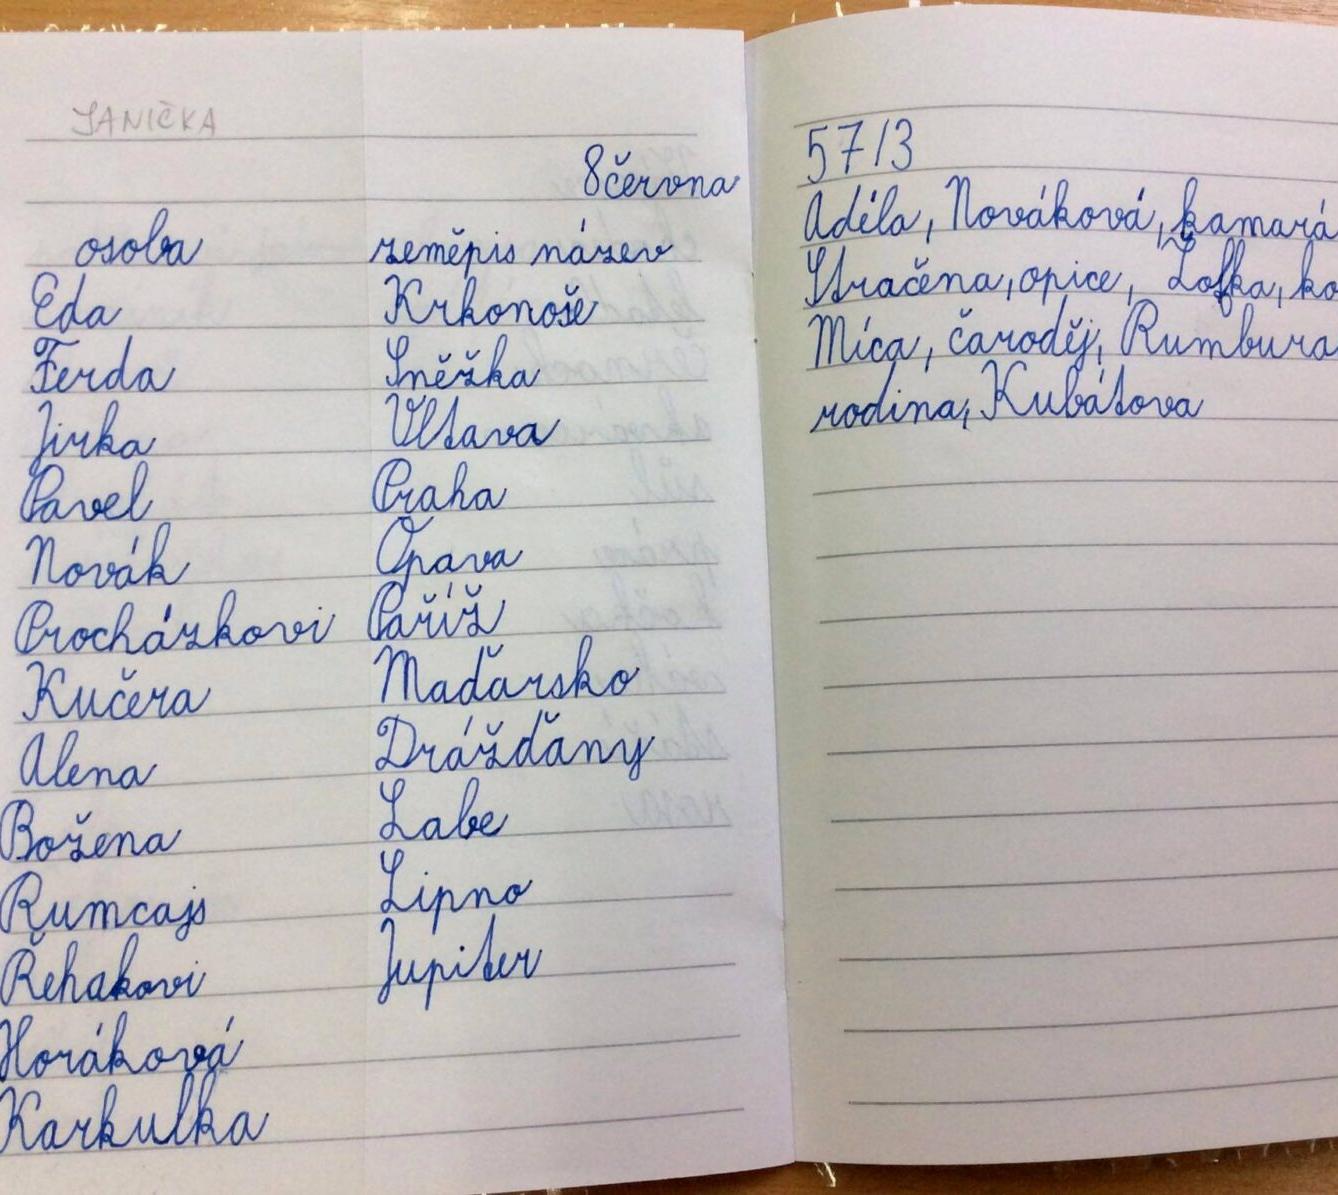 JANIČKA
8června
osoba
Eda
Ferda
Jirka
Pavel
Novák
Procházkovi
Kučera
Alena
Božena
Rumcajs
Řehakovi
Horáková
Karkulka
zeměpis název
Krkonoše
Sněžka
Vltava
Praha
Opava
Paříž
Maďarsko
Drážďany
Labe
Lipno
Jupiter
57/3
Adéla, Nováková, kamará
Stračena, opice, Žofka, ko
Míca, čaroděj, Rumbura
rodina, Kubátova